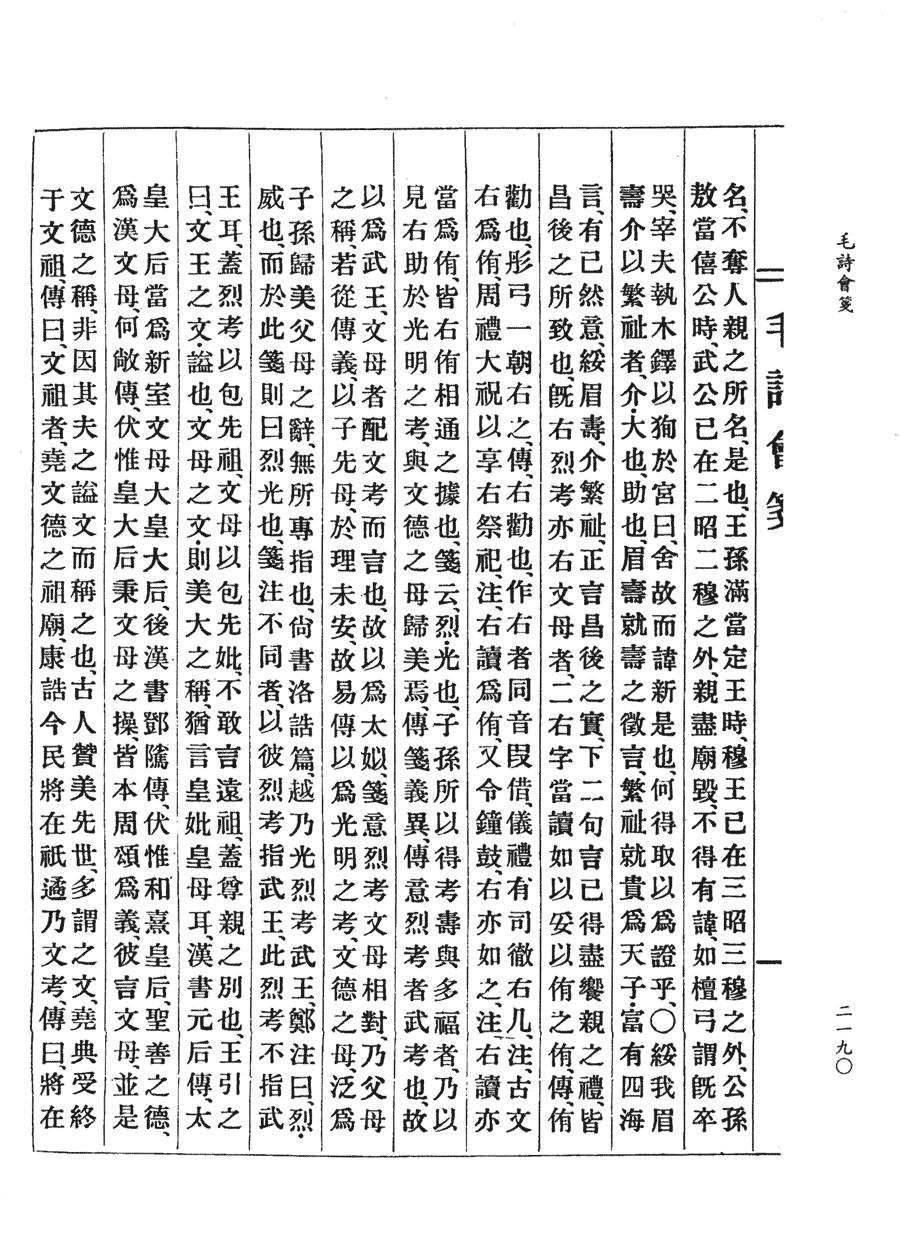 毛詩會箋
二一九〇
毛詩會箋
名、不奪人親之所名、是也、王孫滿當定王時、穆王已在三昭三穆之外、公孫
敖當僖公時、武公已在二昭二穆之外、親盡廟毀、不得有諱、如檀弓謂旣卒
哭、宰夫執木鐸以狥於宮曰、舍故而諱新是也、何得取以爲證乎、〇綏我眉
壽、介以繁祉者、介・大也、助也、眉壽就壽之徵言、繁祉就貴爲天子・富有四海
言、有已然意、綏眉壽、介繁祉、正言昌後之實、下二句言已得盡饗親之禮、皆
昌後之所致也、旣右烈考亦右文母者、二右字當讀如以妥以侑之侑、傳、侑
勸也、彤弓一朝右之、傳、右勸也、作右者同音叚借、儀禮、有司徹右几、注、古文
右爲侑、周禮大祝以享右祭祀、注、右讀爲侑、又令鐘鼓、右亦如之、注、右讀亦
當爲侑、皆右侑相通之據也、箋云、烈・光也、子孫所以得考壽與多福者、乃以
見右助於光明之考、與文德之母歸美焉、傳箋義異、傳意烈考者武考也、故
以爲武王、文母者配文考而言也、故以爲太姒、箋意烈考文母相對、乃父母
之稱、若從傳義、以子先母、於理未安、故易傳以爲光明之考、文德之母、泛爲
子孫歸美父母之辭、無所專指也、尙書洛誥篇、越乃光烈考武王、鄭注曰、烈・
威也、而於此箋則曰烈光也、箋注不同者、以彼烈考指武王、此烈考不指武
王耳、蓋烈考以包先祖、文母以包先妣、不敢言遠祖、蓋尊親之別也、王引之
曰、文王之文・謚也、文母之文・則美大之稱、猶言皇妣皇母耳、漢書元后傳、太
皇大后當爲新室文母大皇大后、後漢書鄧騭傳、伏惟和熹皇后、聖善之德、
爲漢文母、何敞傳、伏惟皇大后秉文母之操、皆本周頌爲義、彼言文母、並是
文德之稱、非因其夫之謚文而稱之也、古人贊美先世、多謂之文、堯典受終
于文祖、傳曰、文祖者、堯文德之祖廟、康誥今民將在祇遹乃文考、傳曰、將在